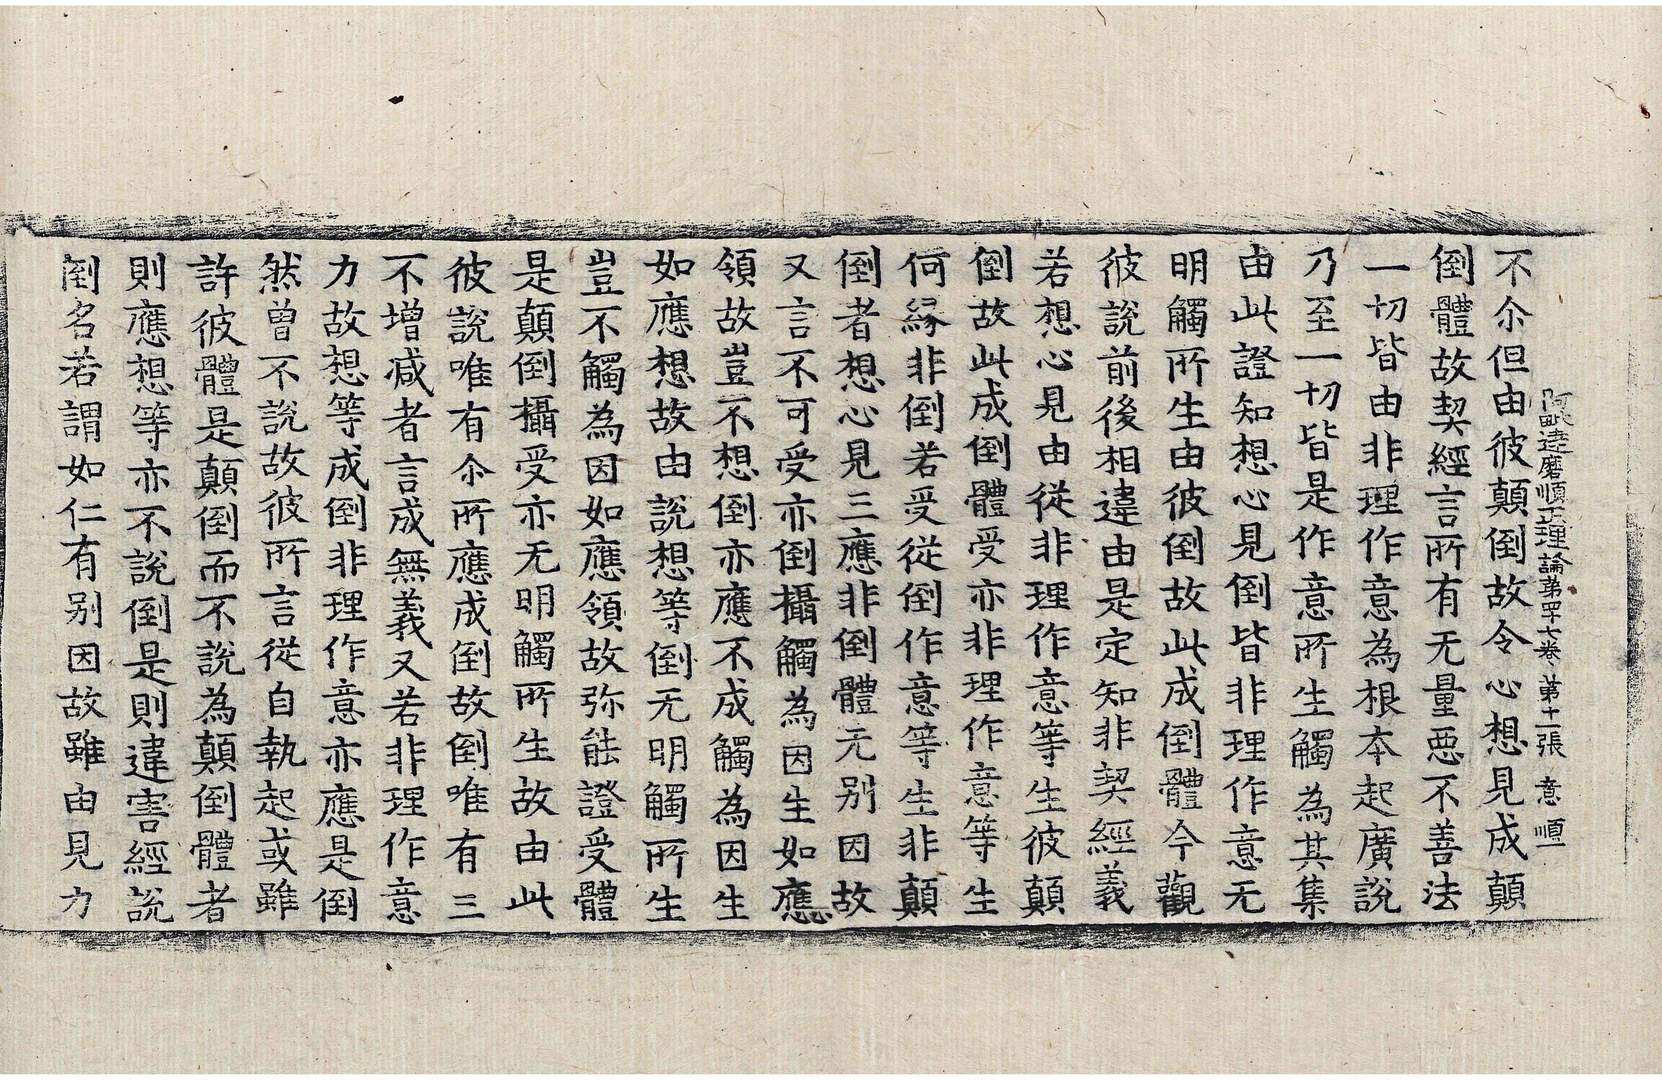 阿毗達磨順正理論第四十七卷 第十一張 意 順
不尒但由彼顛倒故令心想見成顛
倒體故契經言所有无量惡不善法
一切皆由非理作意為根本起廣說
乃至一切皆是作意所生觸為其集
由此證知想心見倒皆非理作意无
明觸所生由彼倒故此成倒體今觀
彼說前後相違由是定知非契經義
若想心見由從非理作意等生彼顛
倒故此成倒體受亦非理作意等生
何緣非倒若受從倒作意等生非顛
倒者想心見三應非倒體无別因故
又言不可受亦倒攝觸為因生如應
領故豈不想倒亦應不成觸為因生
如應想故由說想等倒无明觸所生
豈不觸為因如應領故弥能證受體
是顛倒攝受亦无明觸所生故由此
彼說唯有尒所應成倒故倒唯有三
不增減者言成無義又若非理作意
力故想等成倒非理作意亦應是倒
然曾不說故彼所言從自執起或雖
許彼體是顛倒而不說為顛倒體者
則應想等亦不說倒是則違害經說
倒名若謂如仁有別因故雖由見力